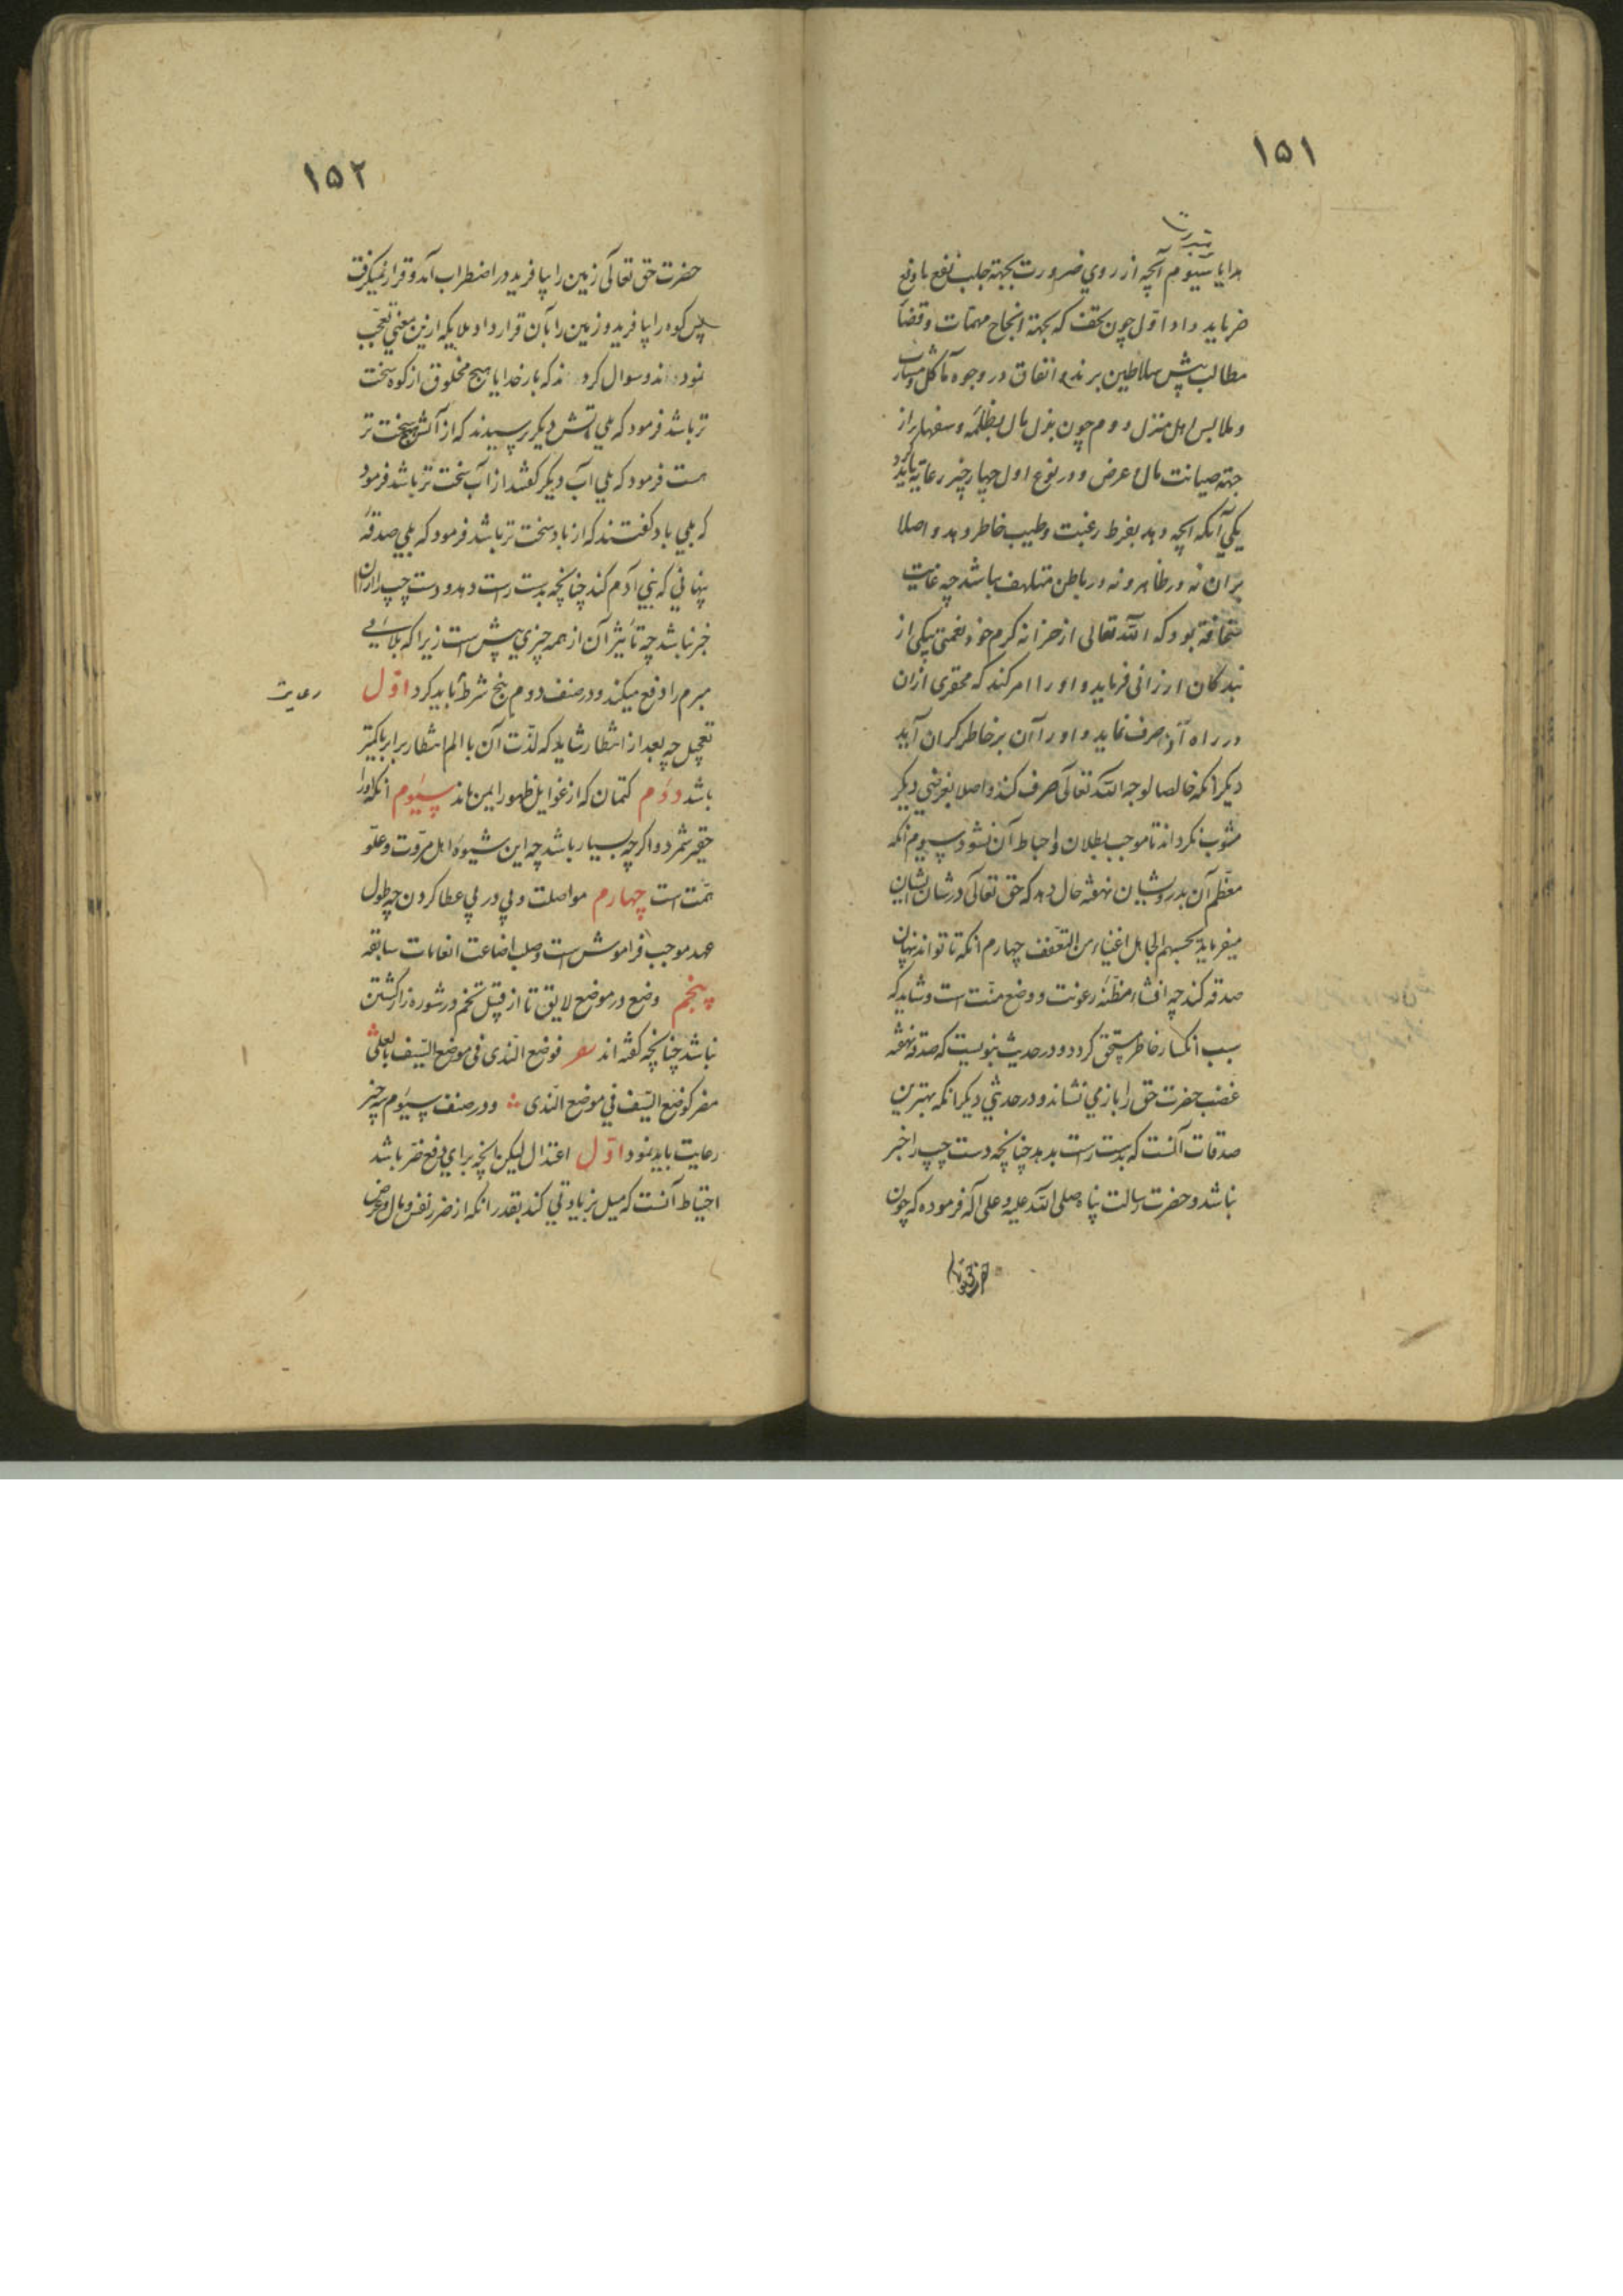 ۱۵۱
هدایا سیوم آنچه از روی ضرورت بجهته جلب نفع یا دفع
ضر باید داد اول چون تحف که بجهته انجاح مهمات و قضآ
مطالب پیش سلاطین برند و انفاق در وجوه مآکل و مشارب
و ملابس اهل منزل دوم چون بذل مال بظلمه و سفها از
جهته صیانت مال و عرض و در نوع اول چهار چیز رعایة باید کرد
یکی آنکه آنچه دهد بفرط رغبت و طیب خاطر دهد و اصلا
بر ان نه در ظاهر و نه در باطن متلهف نباشد چه غایت
سخافة بود که الله تعالی از خزانه کرم خود نعمتی بیکی از
بندکان ارزانی فرماید و او را امر کند که محقری ازان
در راه آن صرف نماید و او را آن بر خاطر کران آید
دیکر انکه خالصا لوجه الله تعالی صرف کند و اصلا بغرضی دیکر
مشوب نکرداند تا موجب بطلان و احباط آن نشود سیوم انکه
معظم آن بدرویشان نهفته حال دهد که حق تعالی در شان ایشان
میفرماید یحسبهم الجاهل اغنیاء من التعفف چهارم انکه تا تواند نهان
صدقه کند چه افشاء مظنه رعونت و وضع منت است و شاید که
سبب انکسار خاطر مستحق کردد و در حدیث نبویست که صدقه نهفته
غضب حضرت حق را باز می نشاند و در حدیثی دیکر انکه بهترین
صدقات آنست که بدست راست بدهد چنانچه دست چپ را خبر
نباشد و حضرت رسالت پناه صلی الله علیه و علی آله فرموده که چون
۱۵۲
حضرت حق تعالی زمین را بیافرید در اضطراب آمد و قرار نمیکرفت
پس کوه را بیافرید و زمین را بآن قرار داد ملایکه ازین معنی تعجب
نمودند و سوال کردند که بار خدایا هیچ مخلوق از کوه سخت
تر باشد فرمود که بلی آتش دیکر پرسیدند که از آتش هیچ سخت تر
هست فرمود که بلی آب دیکر کفتند از آب سخت تر باشد فرمود
که بلی باد کفتند که از باد سخت تر باشد فرمود که بلی صدقهٔ
پنهانی که بنی آدم کند چنانچه بدست راست دهد و دست چپ را ازان
خبر نباشد چه تأثیر آن از همه چیزی بیش است زیرا که بلایی
مبرم را دفع میکند و در صنف دوم پنج شرط باید کرد اول
رعایت
تعجیل چه بعد از انتظار شاید که لذت آن با الم انتظار برابر یا کمتر
باشد دوم کتمان که از غوایل ظهور ایمن ماند سیوم انکه اورا
حقیر شمرد و اکر چه بسیار باشد چه این شیوهٔ اهل مروت و علو
همت است چهارم مواصلت و پی در پی عطا کردن چه طول
عهد موجب فراموش است و صلب اضاعت انعامات سابقه
پنجم وضع در موضع لایق تا از قبیل تخم در شوره زار کشتن
نباشد چنانچه کفته اند شعر فوضع الندی فی موضع السیف بالعلی
مضر کوضع السیف فی موضع الندی و در صنف سیوم سه چیز
رعایت باید نمود اول اعتدال لیکن انچه برای دفع ضر باشد
احتیاط آنست که میل بزیادتی کند بقدر انکه از ضرر نفس و مال و عرض